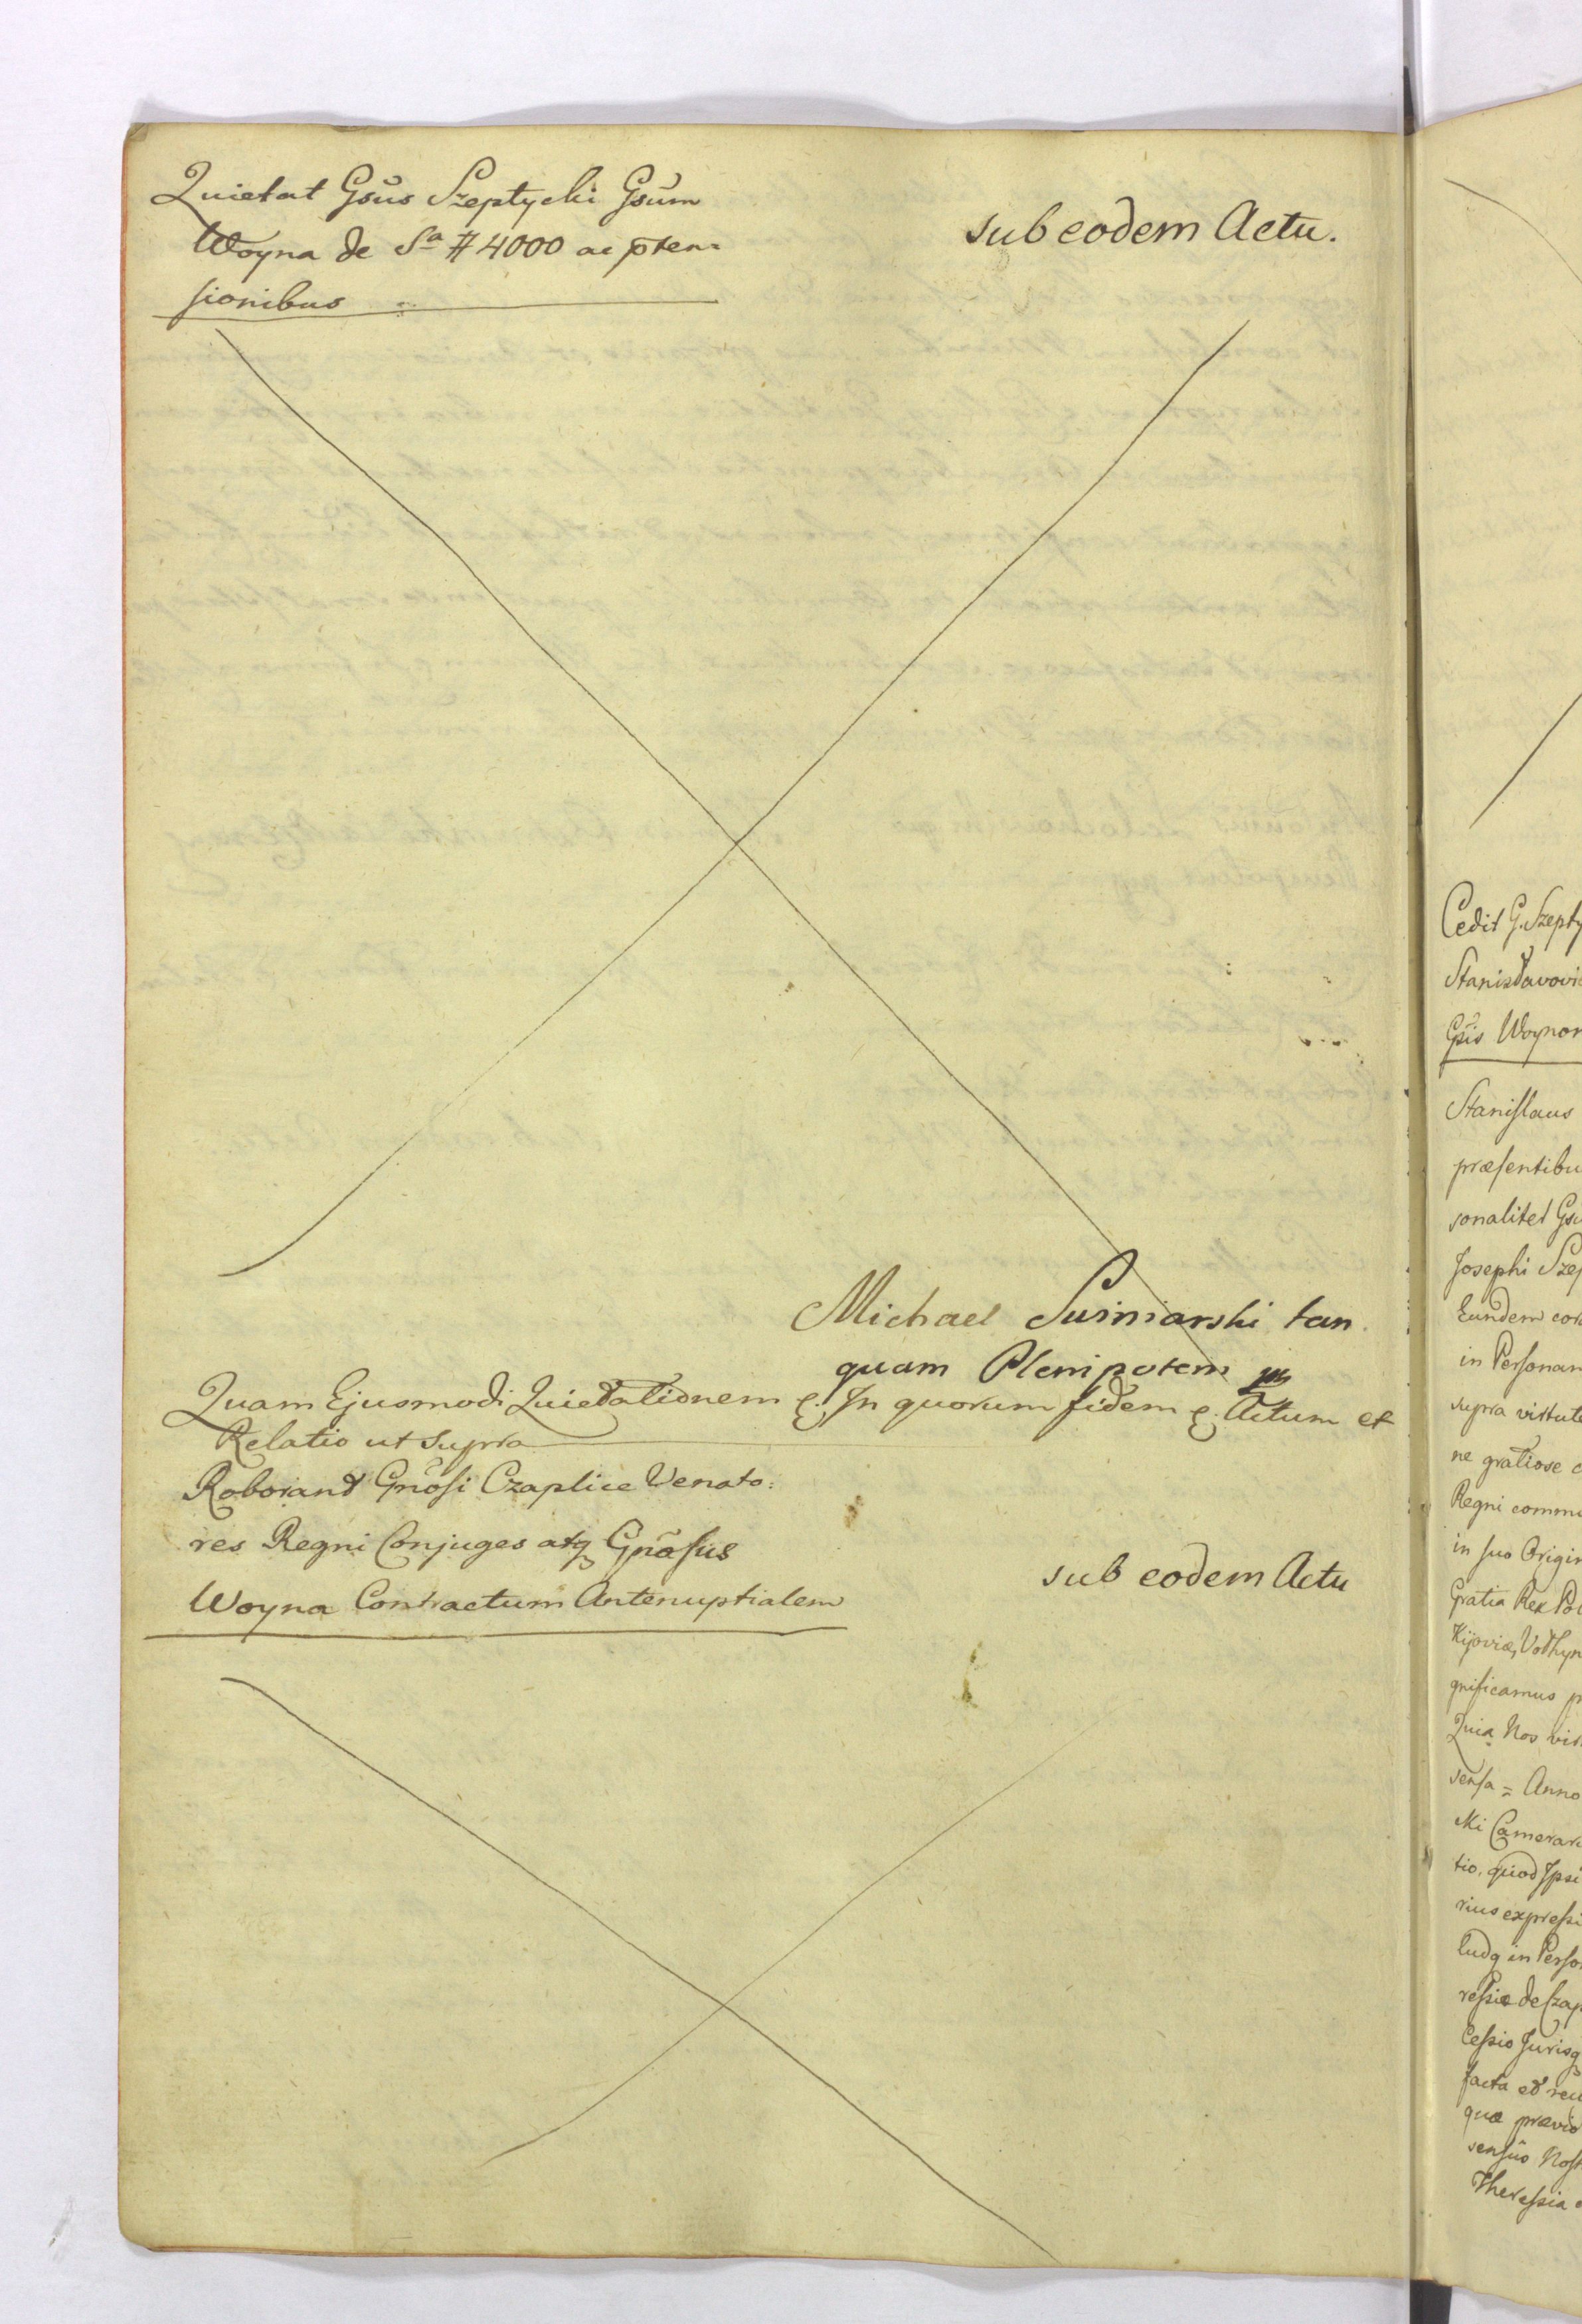 Quietat Gsus Szeptycki Gsum
Woyna de Sa # 4000 ac pten=
sionibus
sub eodem Actu.
Michael Suiniarski tan
quam Plenipotens
Quam Ejusmodi Quietationem In quorum fidem Actum et
Relatio ut supra
Roborand Gnosi Czaplice Venato:
res Regni Conjuges atq Gnosus
Woyna Contractum Antenuptialem
sub eodem Actu
Cedit G. Szepty
Stanislavovi
Gsis Woynor
Stanislaus
præsentibu
sonaliter Gs
Josephi Szep
Eundem cor
in Personam
supra virtute
ne gratiose
Regni commu
in suo Origin
Gratia Rex Pol
Kijoviæ, Volhyn
gnificamus p
Quia Nos vir
sensa = Anno
Mi Camerar
tio, quod Ipsi
rius expressi
ludq in Perso
ressiæ de Czap
Cessio Jurisq
facta et recu
quæ prævio
sensus Nost
Theressia